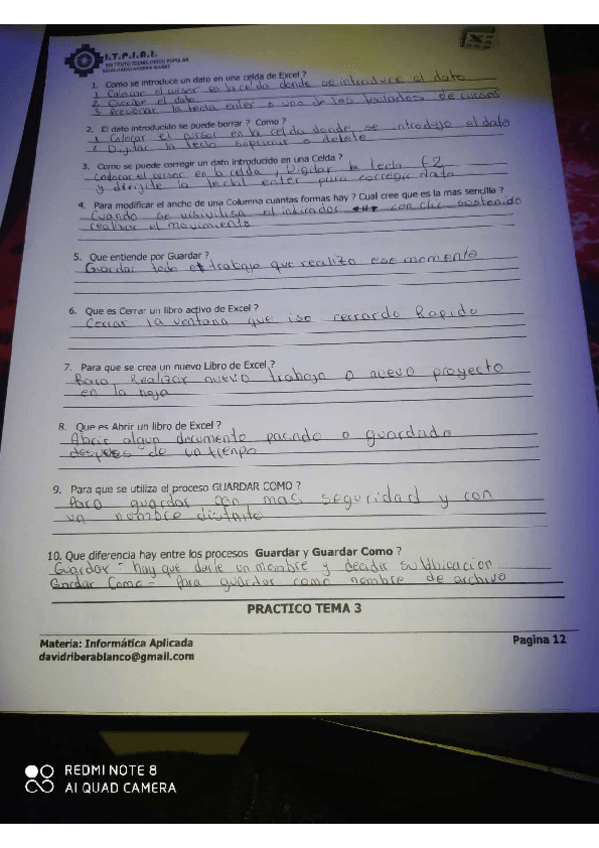 I.T.P.I.A.I.
INSTITUTO TECNOLOGICO POPULAR
1. Como se introduce un dato en una celda de Excel ?
1 Colocar el cursor en la celda donde se introduce el dato
2 Escribe el dato
3 Precionar la tecla enter o uno de los teclados de cursos
2. El dato introducido se puede borrar ? Como ?
1 Colocar el cursor en la celda donde se introdujo el dato
2 Digitar la tecla suprimir o delete
3. Como se puede corregir un dato introducido en una Celda ?
Colocar el cursor en la celda y Digitar la tecla F2
y dirigirle la tecla enter para corregir dato
4. Para modificar el ancho de una Columna cuantas formas hay ? Cual cree que es la mas sencilla ?
Cuando se visiviliza el indicador con clic sostenido
realizar el movimiento
5. Que entiende por Guardar ?
Guardar todo el trabajo que realizo ese momento
6. Que es Cerrar un libro activo de Excel ?
Cerrar la ventana que iso cerrardo Rapido
7. Para que se crea un nuevo Libro de Excel ?
Para Realizar nuevo trabajo o nuevo proyecto
en la hoja
8. Que es Abrir un libro de Excel ?
Abrir algun documento pasado o guardado
despues de un tienpo
9. Para que se utiliza el proceso GUARDAR COMO ?
Para guardar con mas seguridad y con
un nombre distinto
10. Que diferencia hay entre los procesos Guardar y Guardar Como ?
Guardar - hay que darle un nombre y decidir su Ubicacion
Gardar Como - Para guardar como nombre de archivo
PRACTICO TEMA 3
Materia: Informática Aplicada
Pagina 12
davidriberablanco@gmail.com
REDMI NOTE 8
AI QUAD CAMERA